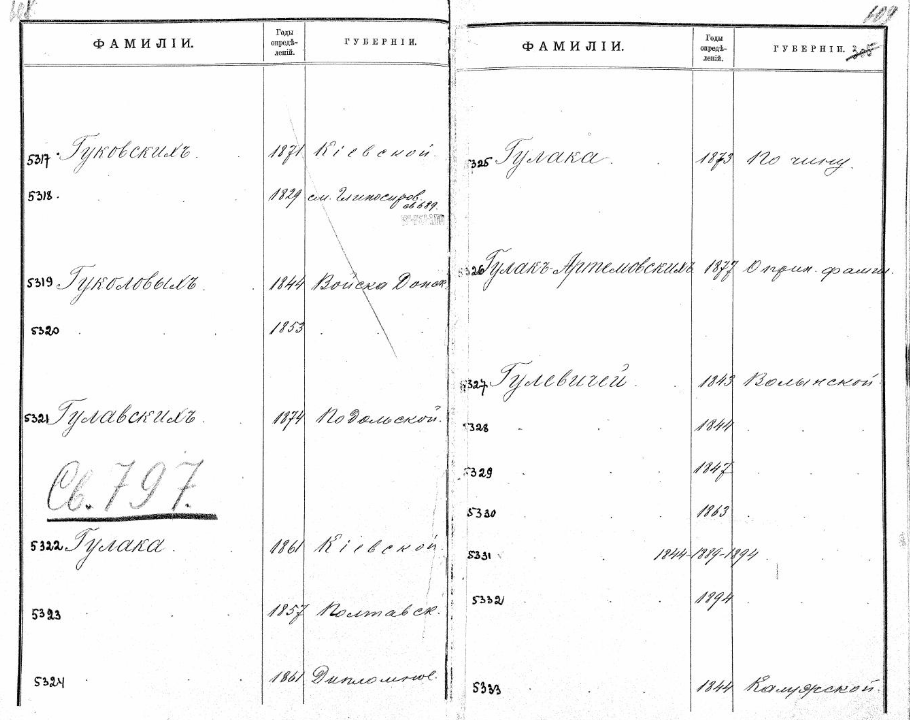 108
ФАМИЛІИ. Годы опредѣ-леній. ГУБЕРНІИ.
5317 Гуковскихъ 1871 Кіевской
5318 1829 см.
5319 Гуколовыхъ 1844 Войска Донск.
5320 1853
5321 Гулавскихъ 1874 Подольской.
Св. 797.
5322 Гулака 1861 Кіевской
5323 1857 Полтавск.
5324 1861 Дипломное.
109
ФАМИЛІИ. Годы опредѣ-леній. ГУБЕРНІИ.
5325 Гулака 1873 По чину
5326 Гулакъ Артемовскихъ 1877 О прин. фамил.
5327 Гулевичей 1843 Волынской
5328 1844
5329 1847
5330 1863
5331 1844-1889-1894
5332 1894
5333 1844 Калужской